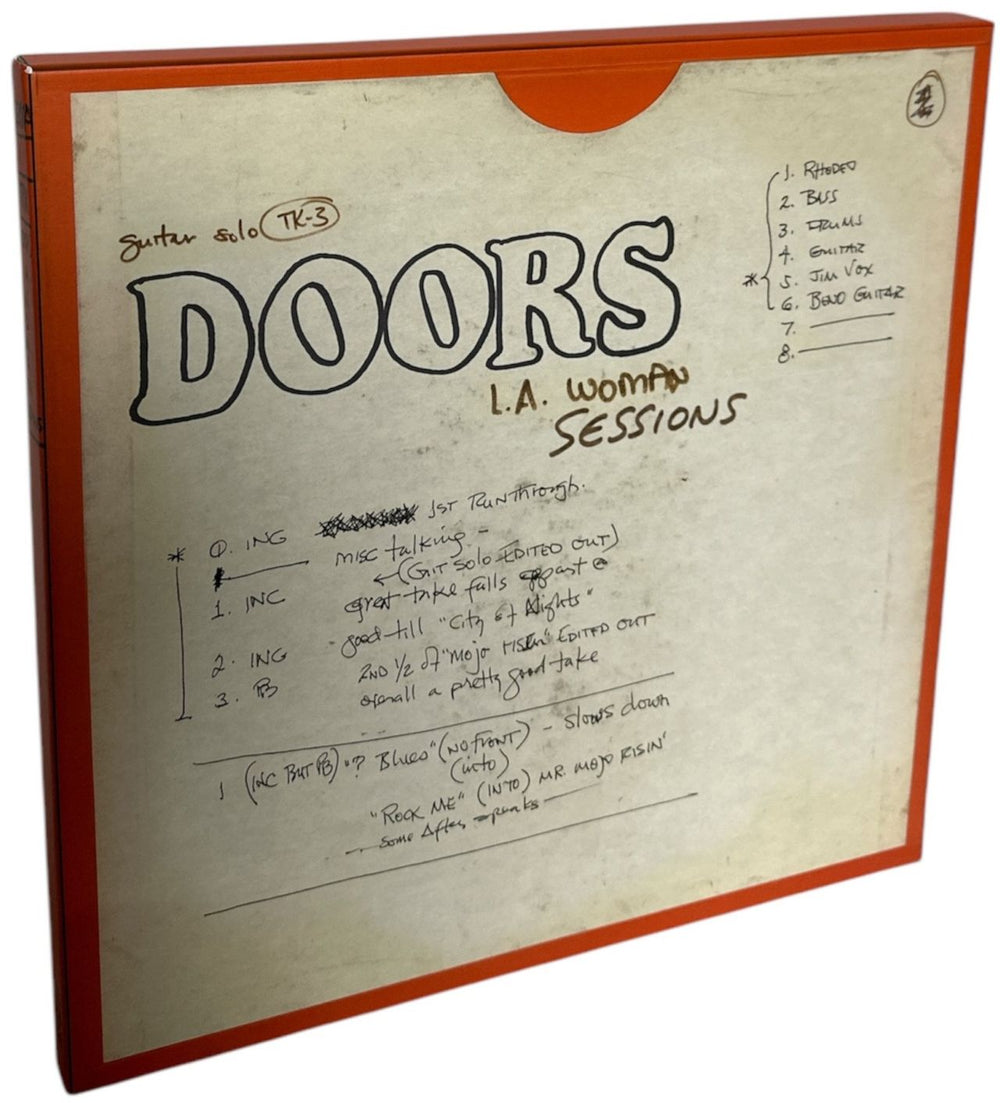 guitar solo TK-3
DOORS
L.A. WOMAN
SESSIONS
1. RHODES
2. BASS
3. DRUMS
4. GUITAR
* 5. JIM VOX
6. BEND GUITAR
7.
8.
* 0. ING 1ST RUNTHROUGH.
misc talking -
← (GIT SOLO EDITED OUT)
1. INC great take falls apart @
good till "City of Nights"
2. ING 2ND 1/2 of "MOJO RISEN" EDITED OUT
3. PB overall a pretty good take
1 (INC BUT PB) "? Blues" (NO FRONT) - slows down
(into)
"ROCK ME" (INTO) MR. MOJO RISIN'
- some After